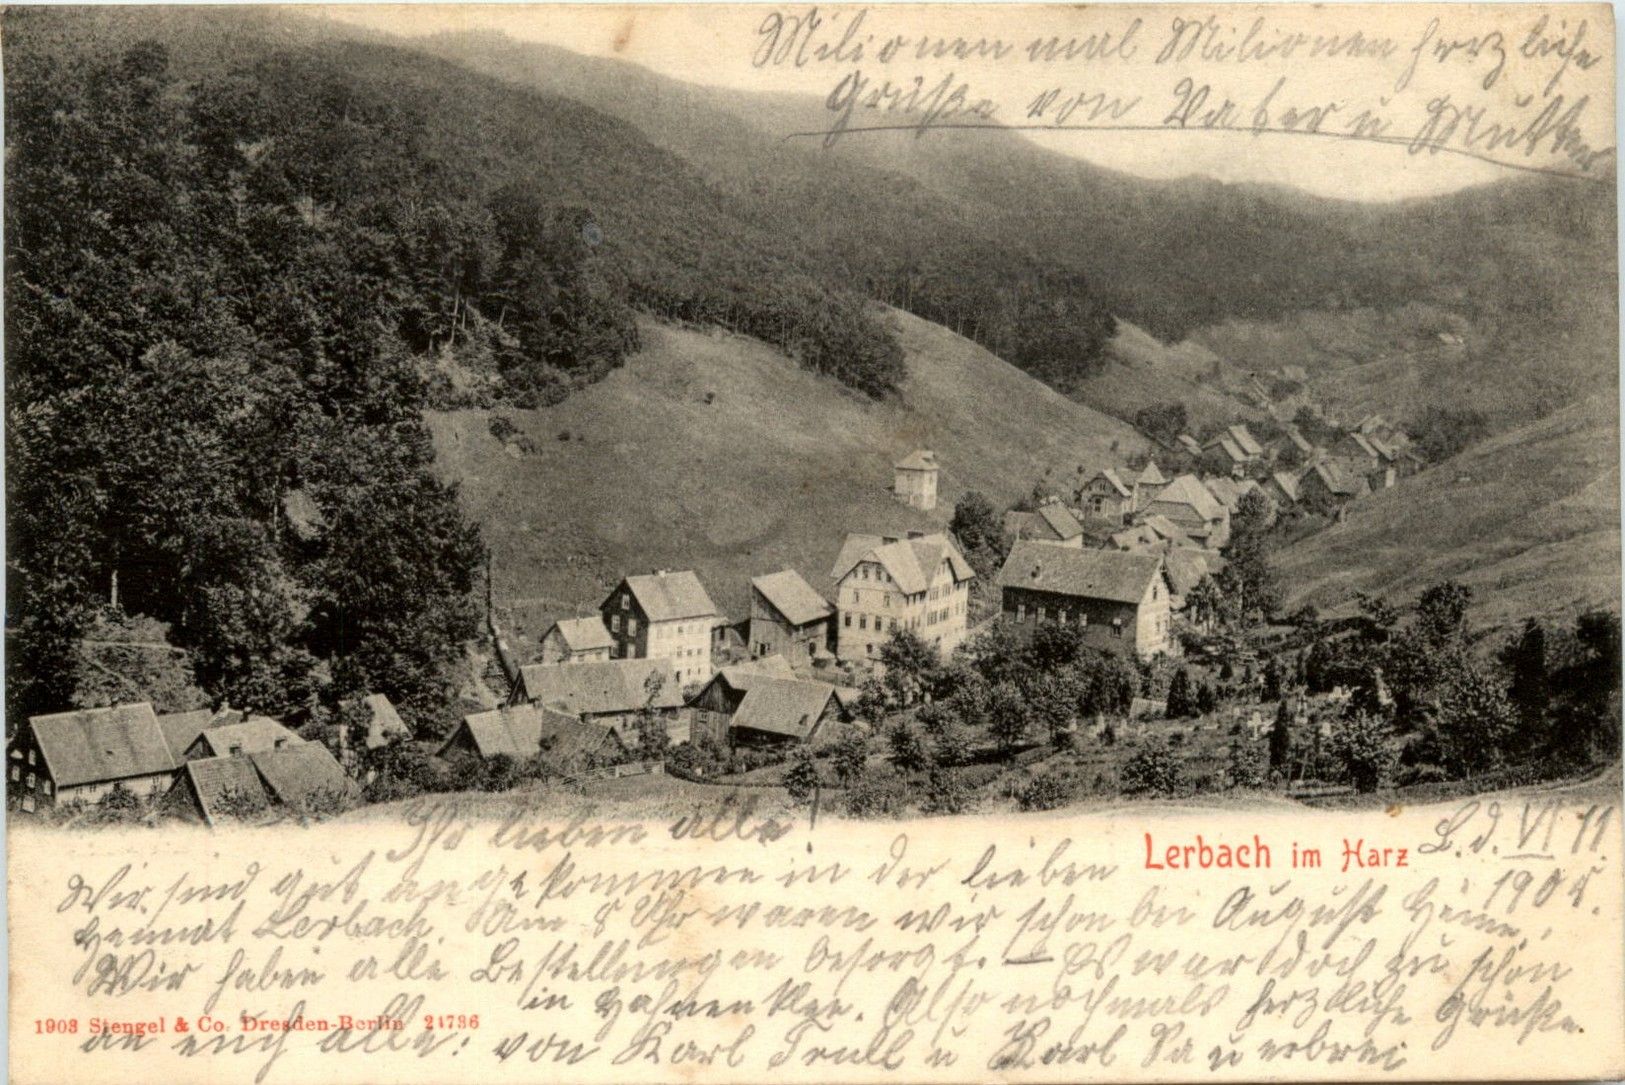 Milionen mal Milionen herzliche
Grüße von Vater u Mutter
Lerbach im Harz
L. d. VI 11.
Ihr lieben alle!
Wir sind gut angekommen in der lieben
Heimat Lerbach. Am 8 Uhr waren wir schon bei August
Wir haben alle Bestellungen besorgt. – Es war doch zu schön
in Hahnenklee. Also nochmals herzliche Grüße
1903 Stengel & Co. Dresden-Berlin 21736
an euch alle: von Karl u Karl